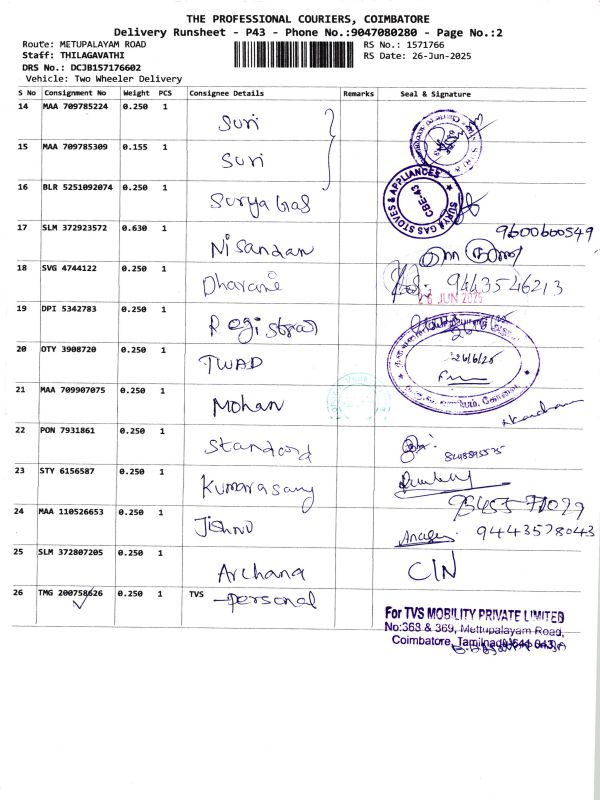 THE PROFESSIONAL COURIERS, COIMBATORE
Delivery Runsheet - P43 - Phone No.:9047080280 - Page No.:2
Route: METUPALAYAM ROAD RS No.: 1571766
Staff: THILAGAVATHI RS Date: 26-Jun-2025
DRS No.: DCJB157176602
Vehicle: Two Wheeler Delivery
S No Consignment No Weight PCS Consignee Details Remarks Seal & Signature
14 MAA 709785224 0.250 1 Suri
15 MAA 709785309 0.155 1 Suri
16 BLR 5251092074 0.250 1 Surya Gas
SURYA GAS STOVES & APPLIANCES CBE-43
17 SLM 372923572 0.630 1 Nisandan 9600600549
18 SVG 4744122 0.250 1 Dharani 9443546213
26 JUN 2025
19 DPI 5342783 0.250 1 Registrar
20 OTY 3908720 0.250 1 TWAD 26/6/25
21 MAA 709907075 0.250 1 Mohan
22 PON 7931861 0.250 1 Standord
23 STY 6156587 0.250 1 Kumarasamy
24 MAA 110526653 0.250 1 Jishnu 9443578043
25 SLM 372807205 0.250 1 Archana CIN
26 TMG 200758626 0.250 1 TVS -personal
For TVS MOBILITY PRIVATE LIMITED
No:363 & 369, Mettupalayam Road,
Coimbatore, Tamilnadu-641 043